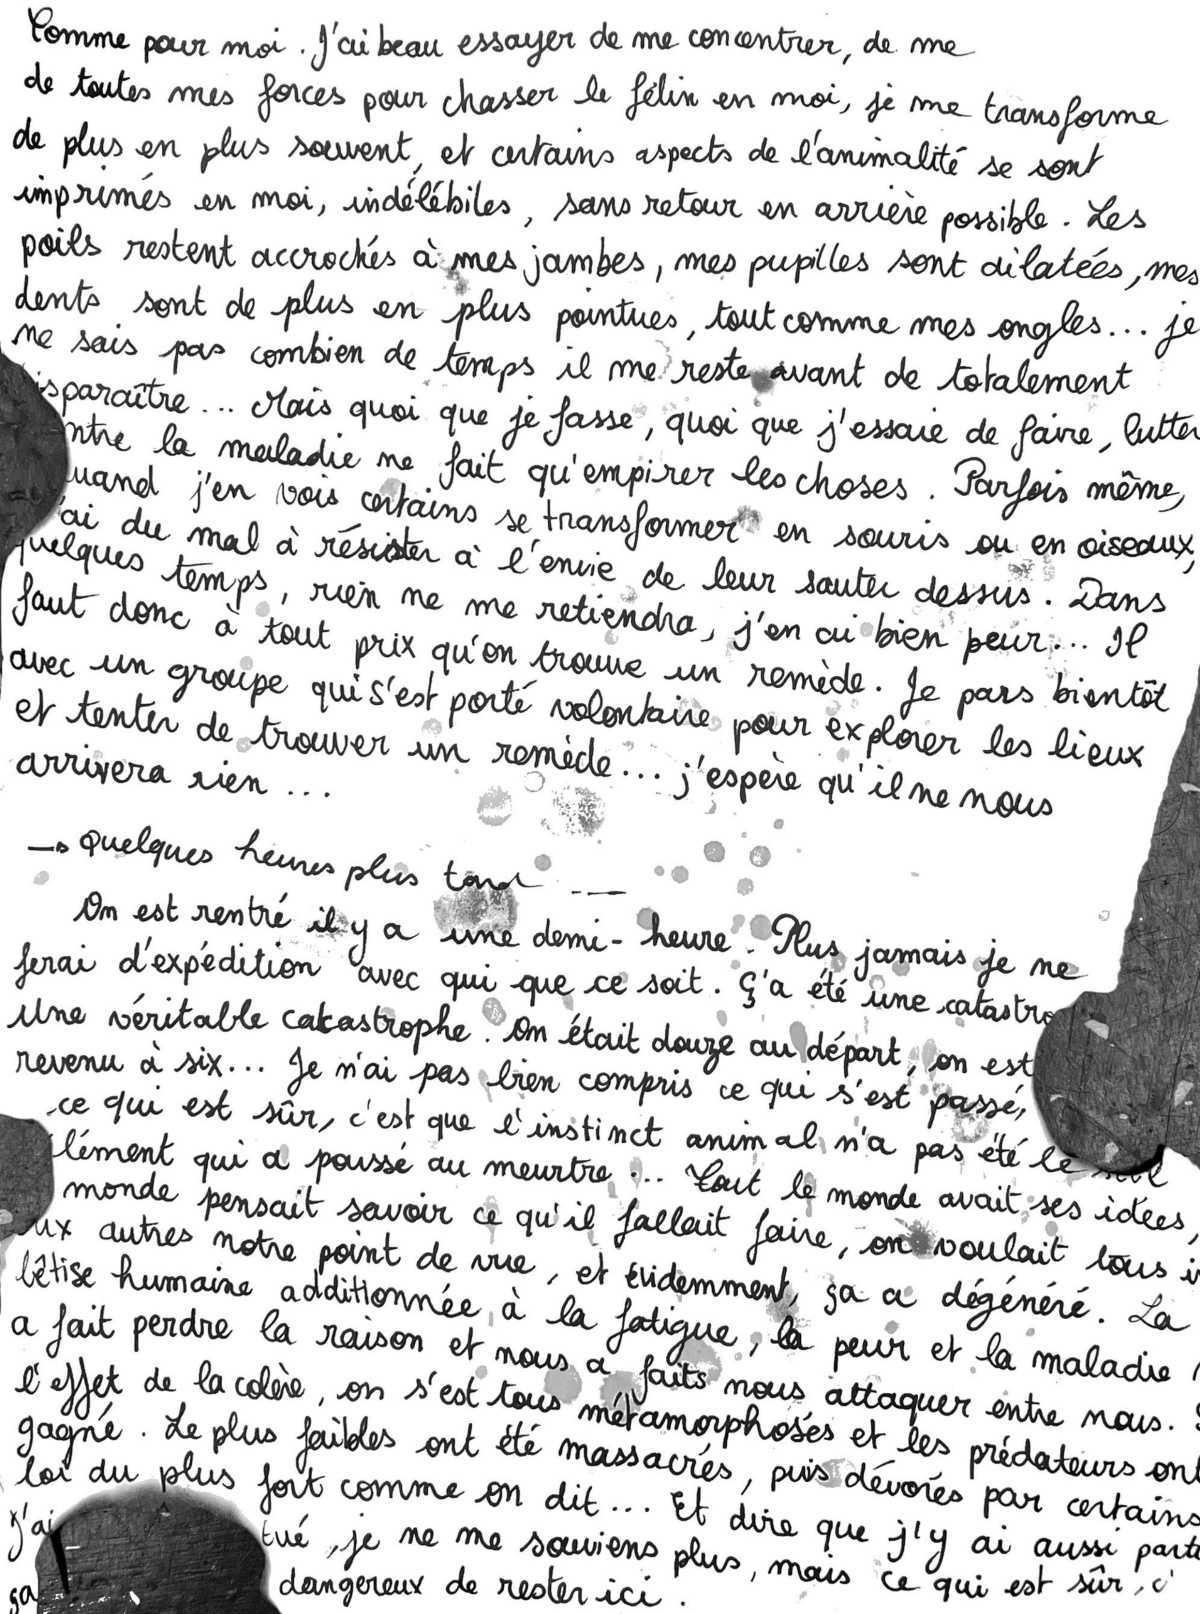 Comme pour moi. J'ai beau essayer de me concentrer, de me
de toutes mes forces pour chasser le félin en moi, je me transforme
de plus en plus souvent, et certains aspects de l'animalité se sont
imprimés en moi, indélébiles, sans retour en arrière possible. Les
poils restent accrochés à mes jambes, mes pupilles sont dilatées, mes
dents sont de plus en plus pointues, tout comme mes ongles... je
ne sais pas combien de temps il me reste avant de totalement
isparaître... Mais quoi que je fasse, quoi que j'essaie de faire, lutter
ntre la maladie ne fait qu'empirer les choses. Parfois même,
uand j'en vois certains se transformer en souris ou en oiseaux,
'ai du mal à résister à l'envie de leur sauter dessus. Dans
quelques temps, rien ne me retiendra, j'en ai bien peur... Il
faut donc à tout prix qu'on trouve un remède. Je pars bientôt
avec un groupe qui s'est porté volontaire pour explorer les lieux
et tenter de trouver un remède... j'espère qu'il ne nous
arrivera rien...
→ Quelques heures plus tard ---
On est rentré il y a une demi-heure. Plus jamais je ne
ferai d'expédition avec qui que ce soit. Ç'a été une catastro
Une véritable catastrophe. On était douze au départ, on est
revenu à six... Je n'ai pas bien compris ce qui s'est passé,
ce qui est sûr, c'est que l'instinct animal n'a pas été le seul
lément qui a poussé au meurtre... Tout le monde avait ses idées,
monde pensait savoir ce qu'il fallait faire, on voulait tous i
ux autres notre point de vue, et évidemment, ça a dégénéré. La
bêtise humaine additionnée à la fatigue, la peur et la maladie
a fait perdre la raison et nous a faits nous attaquer entre nous.
l'effet de la colère, on s'est tous métamorphosés et les prédateurs ont
gagné. Le plus faibles ont été massacrés, puis dévorés par certains
loi du plus fort comme on dit... Et dire que j'y ai aussi parti
j'ai tué, je ne me souviens plus, mais ce qui est sûr, c'
ça dangereux de rester ici.